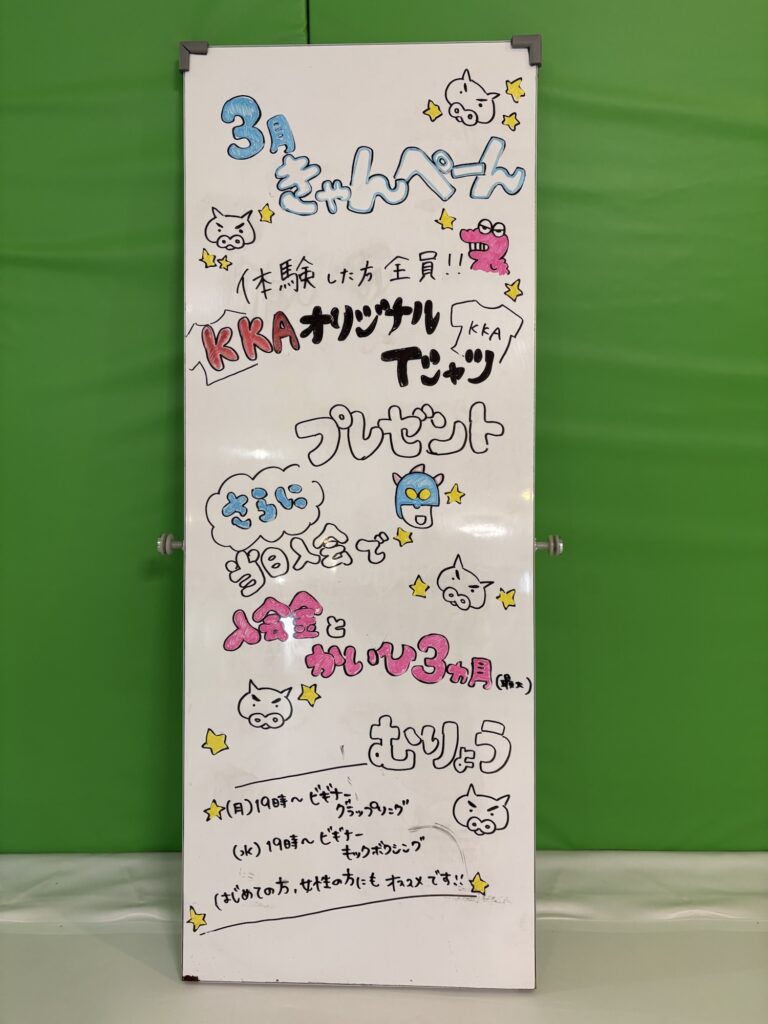 3月
きゃんぺーん
体験した方全員!!
KKAオリジナル
KKA
Tシャツ
プレゼント
さらに
当日入会で
入会金と
かいひ3ヵ月(最大)
むりょう
(月)19時〜ビギナー
グラップリング
(水)19時〜ビギナー
キックボクシング
(はじめての方,女性の方にもオススメです!!